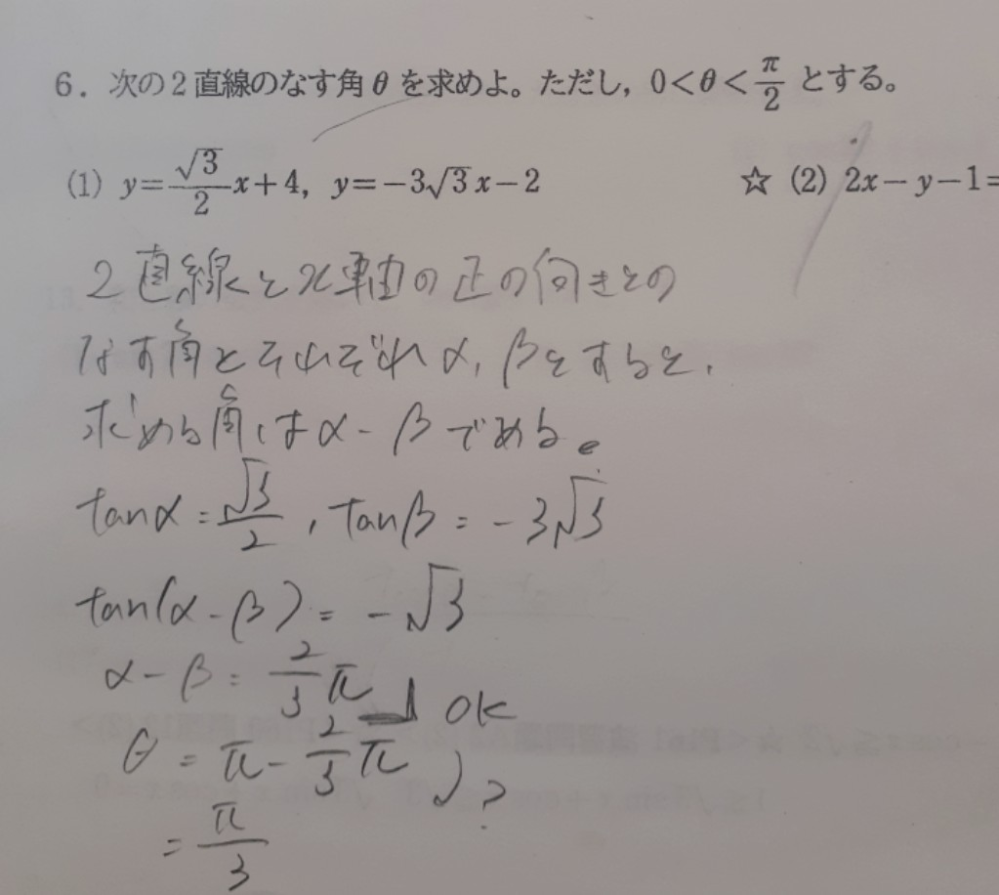 6. 次の2直線のなす角θを求めよ。ただし, 0<θ<π/2 とする。
(1) y=√3/2 x+4, y=-3√3x-2
☆ (2) 2x-y-1=
2直線とx軸の正の向きとの
なす角とそれぞれα, βとすると,
求める角はα-βである。
tanα=√3/2, tanβ=-3√3
tan(α-β)=-√3
α-β=2/3π
OK
θ=π-2/3π
?
=π/3